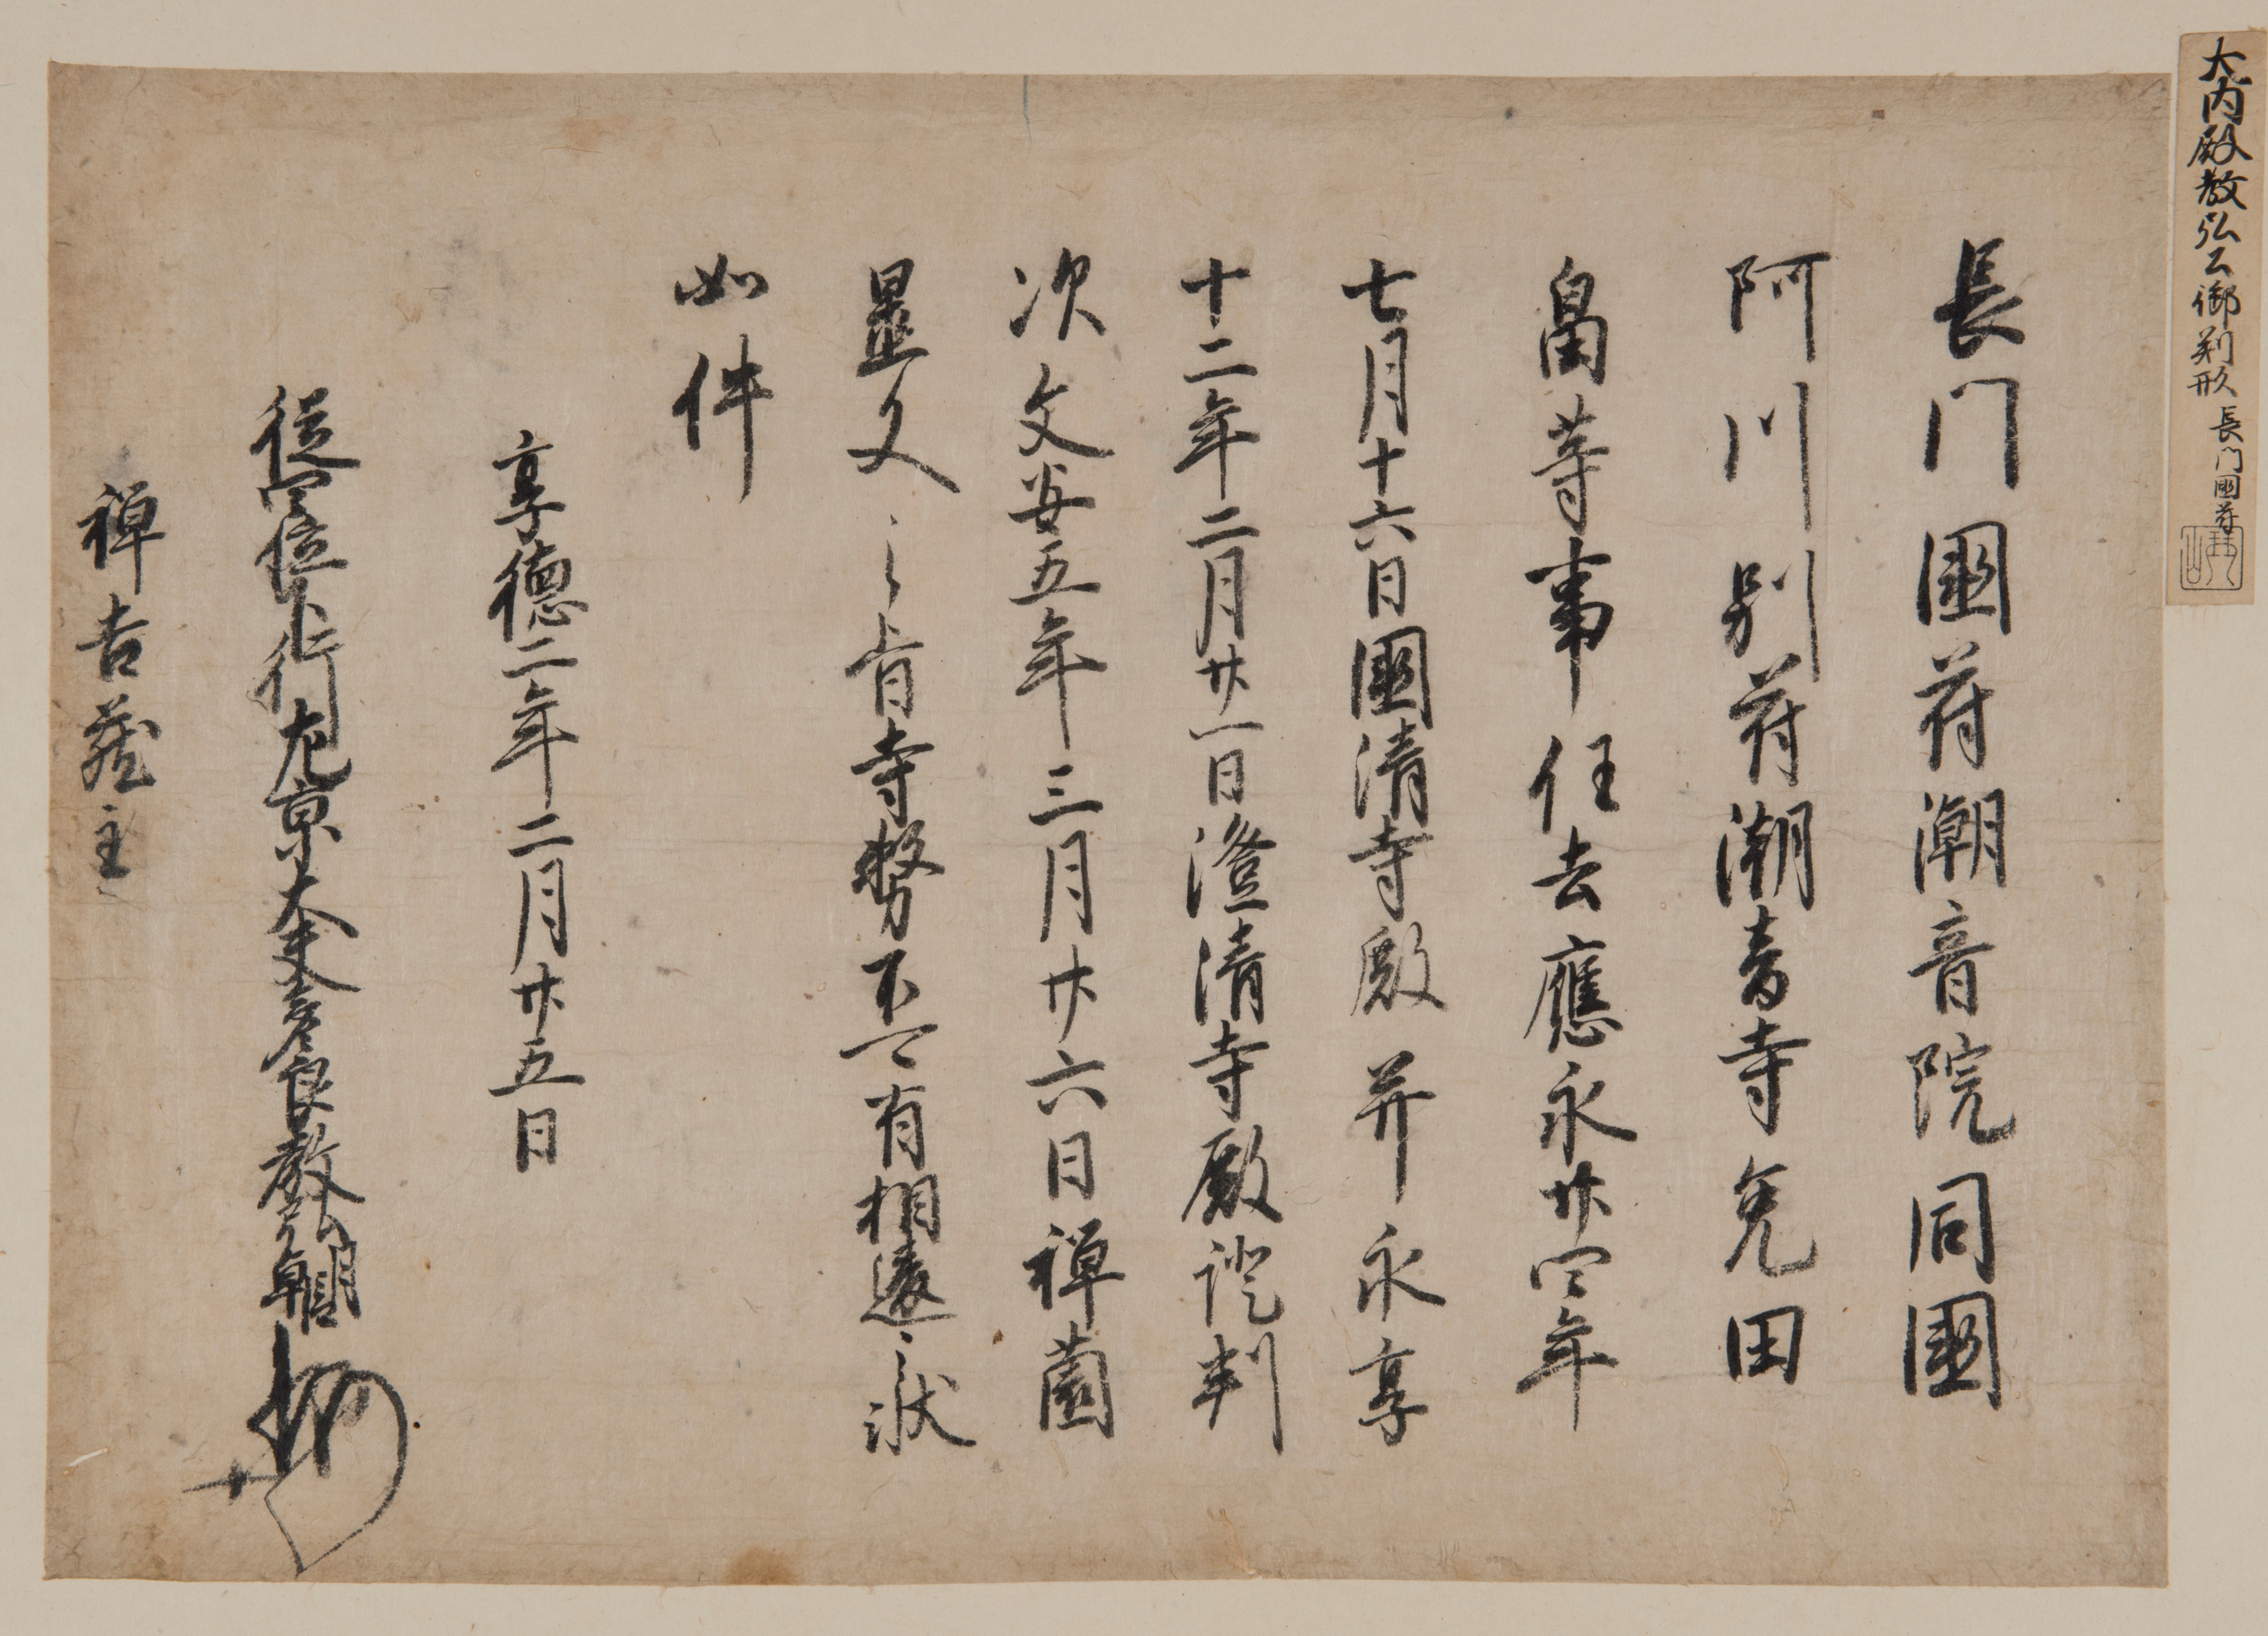 大内殿教弘公御判形 長門國苻
長門國苻潮音院同國
阿川別苻潮音寺免田
畠等事任去應永廿四年
七月十六日國清寺殿并永享
十二年二月廿一日澄清寺殿證判
次文安五年三月廿六日禅薗
置文之旨寺務不可有相違之状
如件
享徳二年二月廿五日
従四位下行左京大夫多々良教弘朝臣
禅吉蔵主